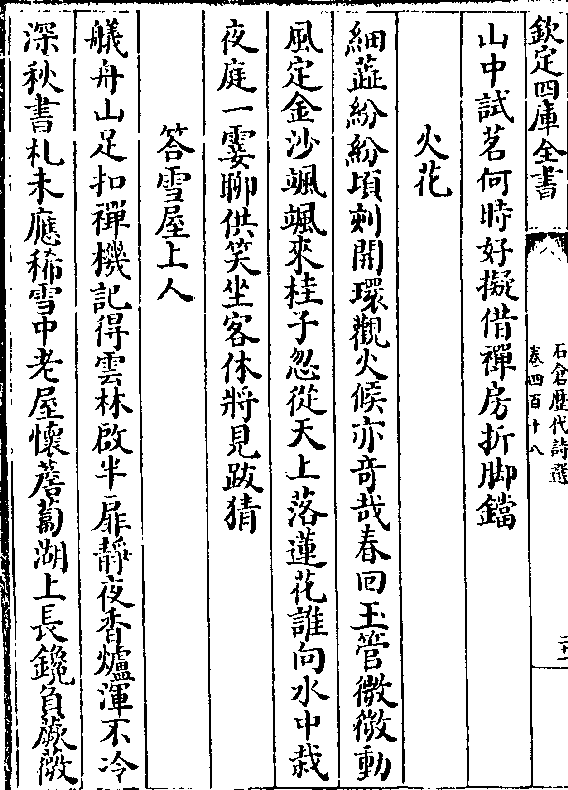 欽定四庫全書
石倉歷代詩選
卷四百十八
山中試茗何時好擬借禪房折脚鐺
火花
細蕋紛紛頃刻開環觀火候亦奇哉春回玉管微微動
風定金沙颯颯來桂子忽從天上落蓮花誰向水中栽
夜庭一霎聊供笑坐客休將見跋猜
答雪屋上人
艤舟山足扣禪機記得雲林啟半扉靜夜香爐渾不冷
深秋書札未應稀雪中老屋懷薝蔔湖上長鑱負蕨薇